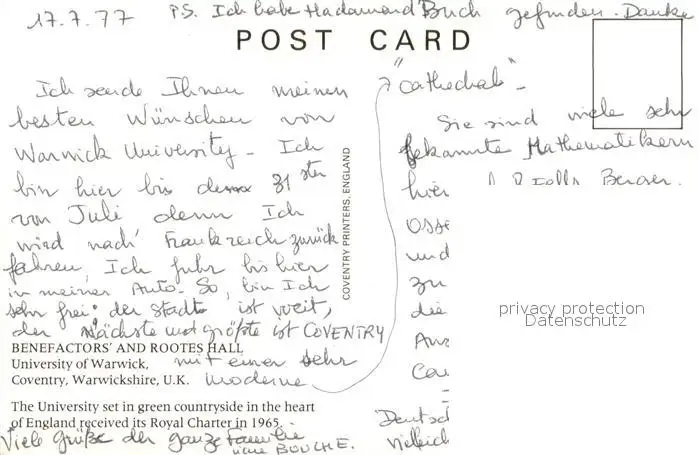 17.7.77 P.S. Ich habe Hadamard Buch gefunden. Danke
POST CARD
Ich sende Ihnen meinen
besten Wünschen von
Warwick University - Ich
bin hier bis dem 31 sten
von Juli denn Ich
wird nach Frankreich zurück
fahren, Ich fuhr bis hier
in meiner Auto. So, bin Ich
sehr frei: der Stadte ist weit,
der nächste und größte ist COVENTRY
mit einer sehr
moderne
"Cathedrale" -
Sie sind viele sehr
bekannte Mathematikern
hier
und
zu
die
Deutsch
Vielleich
COVENTRY PRINTERS, ENGLAND
BENEFACTORS' AND ROOTES HALL
University of Warwick,
Coventry, Warwickshire, U.K.
The University set in green countryside in the heart
of England received its Royal Charter in 1965.
Viele Grüße der ganze Familie
BOUCHE.
privacy protection
Datenschutz